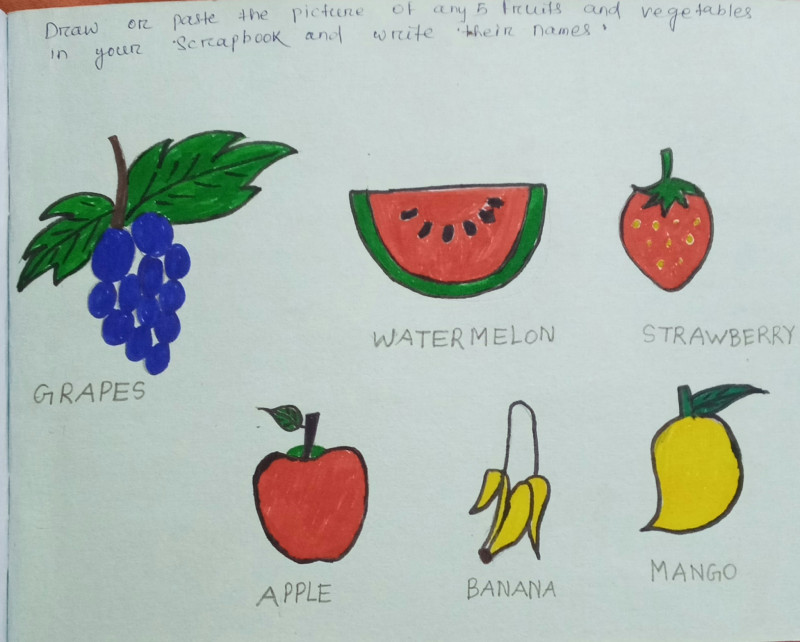 Draw or paste the picture of any 5 fruits and vegetables
in your Scrapbook and write their names.
GRAPES
WATERMELON
STRAWBERRY
APPLE
BANANA
MANGO